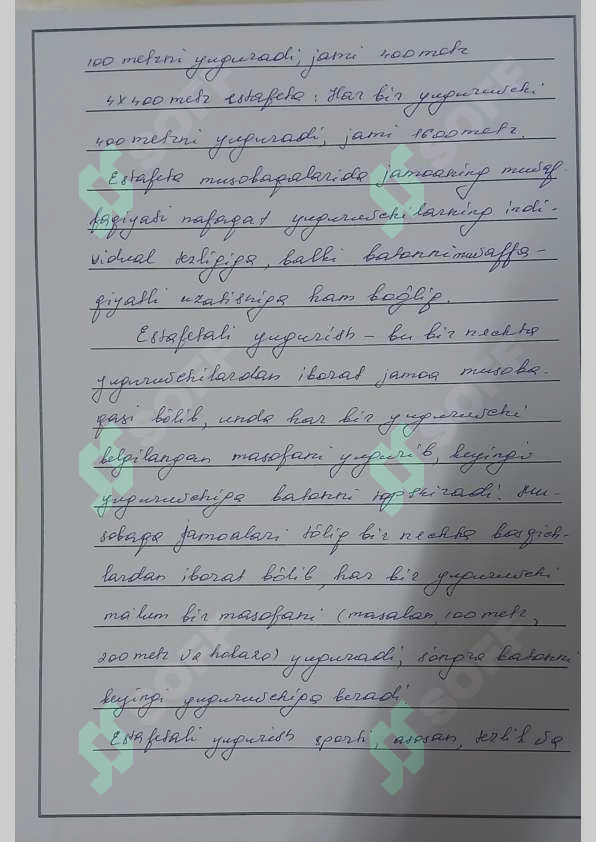 100 metrni yuguradi, jami 400 metr
4x400 metr estafeta: Har bir yuguruvchi
400 metrni yuguradi, jami 1600 metr.
Estafeta musobaqalarida jamoaning muvaf-
faqiyati nafaqat yuguruvchilarning indi-
vidual tezligiga, balki batonni muvaffa-
qiyatli uzatishiga ham bog'liq.
Estafetali yugurish – bu bir nechta
yuguruvchilardan iborat jamoa musoba-
qasi bo'lib, unda har bir yuguruvchi
belgilangan masofani yugurib, keyingi
yuguruvchiga batonni topshiradi. Mu-
sobaqa jamoalari to'liq bir nechta bosqich-
lardan iborat bo'lib, har bir yuguruvchi
ma'lum bir masofani (masalan, 100 metr,
200 metr va hokazo) yuguradi, so'ngra batonni
keyingi yuguruvchiga beradi
Estafetali yugurish sporti, asosan, tezlik va
SOFF
SOFF
SOFF
SOFF
SOFF
SOFF